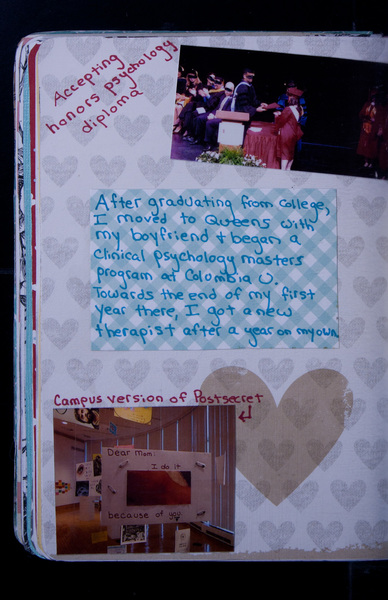 Accepting
honors psychology
diploma
After graduating from college,
I moved to Queens with
my boyfriend + began a
clinical psychology masters
program at Colombia U.
Towards the end of my first
year there, I got a new
therapist after a year on my own.
Campus version of Postsecret
Dear Mom:
I do it
because of you